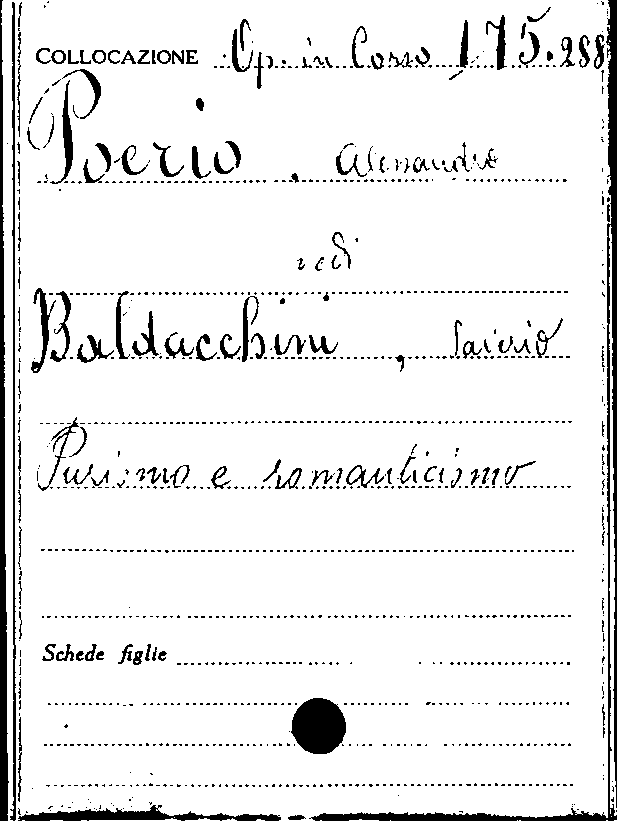 COLLOCAZIONE Op. in Corso 175.288
Poerio, Alessandro
vedi
Baldacchini, Saverio
Purismo e romanticismo
Schede figlie